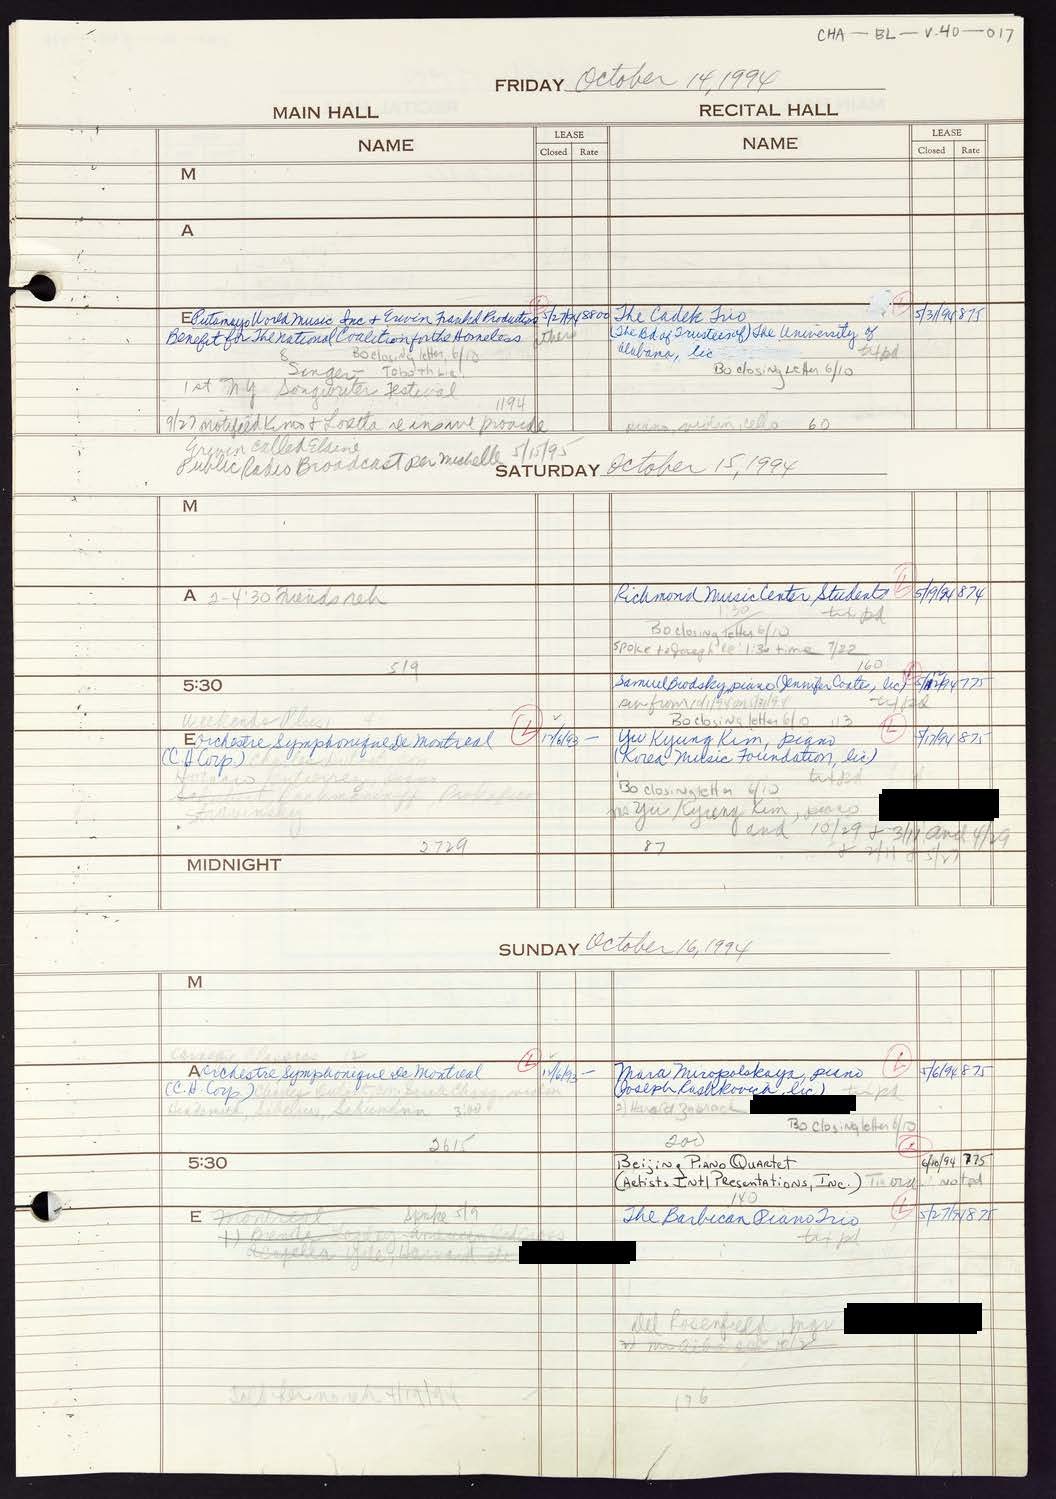 CHA — BL — V.40 — 017
FRIDAY October 14, 1994
MAIN HALL
RECITAL HALL
NAME
LEASE
Closed Rate
NAME
LEASE
Closed Rate
M
A
E Putumayo World Music Inc + Erwin Frankel Productions 5/27/94 8800
Benefit for The National Coalition for the Homeless
Bo closing letter 6/10
Singer
1st NY Songwriter Festival
1194
9/27 notified Kims + Loetta re insure provide
Erwin called Elaine
Public Radio Broadcast per Michelle 5/15/95
The Cadek Trio L 5/31/94 875
(The Bd of Trustees of) The University of
Alabama, lic tx pd
Bo closing letter 6/10
piano, violin, cello 60
SATURDAY October 15, 1994
M
A 2-4:30 Friends reh
519
Richmond Music Center Students L 5/19/94 874
1:30 tx pd
Bo closing letter 6/10
spoke to Joseph re 1:30 time 7/22
160
5:30
Samuel Brodsky, piano (Jennifer Coates, lic) L 775
Bo closing letter 6/10 113
Weekends Plus
E Orchestre Symphonique De Montreal L 12/6/93 —
(C.H. Corp.)
Rachmaninoff, Prokofiev
Stravinsky
2729
Yu Kyung Kim, piano L 5/17/94 875
(Korea Music Foundation, lic)
tx pd
Bo closing letter 6/10
Yu Kyung Kim, piano
and 10/29 + 3/11 and 4/29
+ 2/11 + 5/27
87
MIDNIGHT
SUNDAY October 16, 1994
M
A Orchestre Symphonique De Montreal L 12/6/93 —
(C.H. Corp)
Hindemith, Sibelius, Schumann 3:00
2615
Mara Miropolskaya, piano L 5/6/94 875
(Joseph Rashkovich, lic) tx pd
2) Harold
Bo closing letter 6/10
200
5:30
Beijing Piano Quartet 6/10/94 775
(Artists Intl Presentations, Inc.) not pd
140
E Montreal Spoke 5/9
Acapella Yale, Harvard etc
The Barbican Piano Trio L 5/27/94 875
tx pd
Del Rosenfield, mgr
196